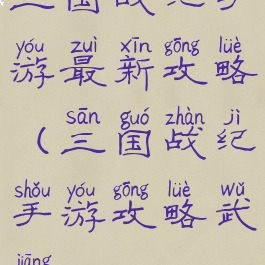 三国战纪手
yóu zuì xīn gōng lüè
游最新攻略
sān guó zhàn jì
（三国战纪
shǒu yóu gōng lüè wǔ
手游攻略武
jiāng